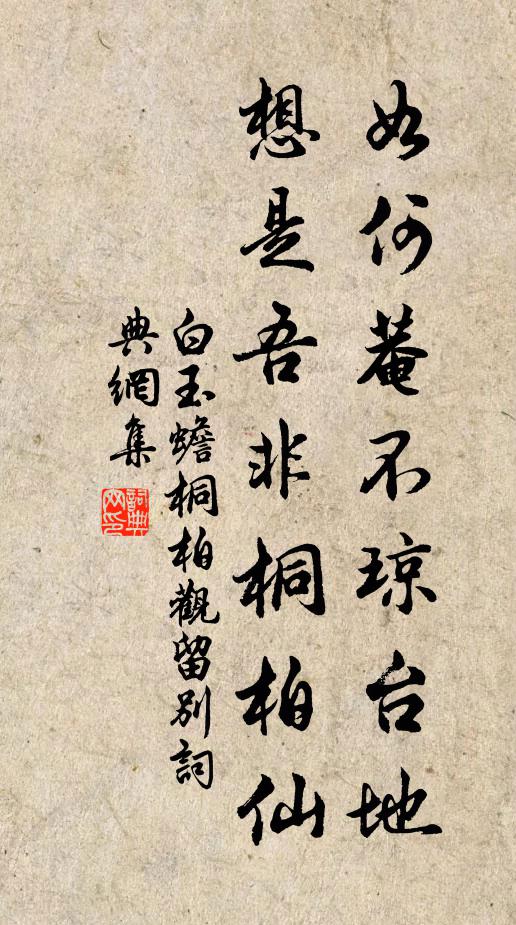 如何菴不琼台地
想是吾非桐柏仙
白玉蟾桐柏觀留别詞
典網集
詞典网印